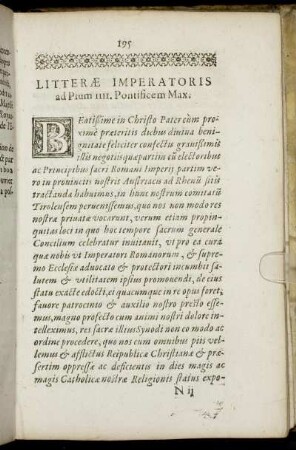 195
LITTERÆ IMPERATORIS
ad Pium IIII. Pontificem Max.
BEatissime in Christo Pater cùm pro-
ximè præteritis diebus diuina beni-
gnitate feliciter confectis grauissimis
illis negotiis quæ partim cũ electoribus
ac Principibus sacri Romani Imperij partim ve-
ro in prouinciis nostris Austriacis ad Rhenũ sitis
tractanda habuimus, in hunc nostrum comitatũ
Tirolensem peruenissemus, quo nos non modo res
nostræ priuatæ vocarunt, verum etiam propin-
quitas loci in quo hoc tempore sacrum generale
Concilium celebratur inuitauit, vt pro ea cura
quæ nobis vt Imperatori Romanorum, & supre-
mo Ecclesiæ aduocato & protectori incumbit sa-
lutem & vtilitatem ipsius promouendi, de eius
statu exacte edocti, ei quacumque in re opus foret,
fauore patrocinio & auxilio nostro præsto esse-
mus, magno profecto cum animi nostri dolore in-
telleximus, res sacræ illius Synodi non eo modo ac
ordine procedere, quo nos cum omnibus piis vel-
lemus & afflictus Reipublicæ Christianæ & præ-
sertim oppressæ ac deficientis in dies magis ac
magis Catholicæ nostræ Religionis status expo-
N ij